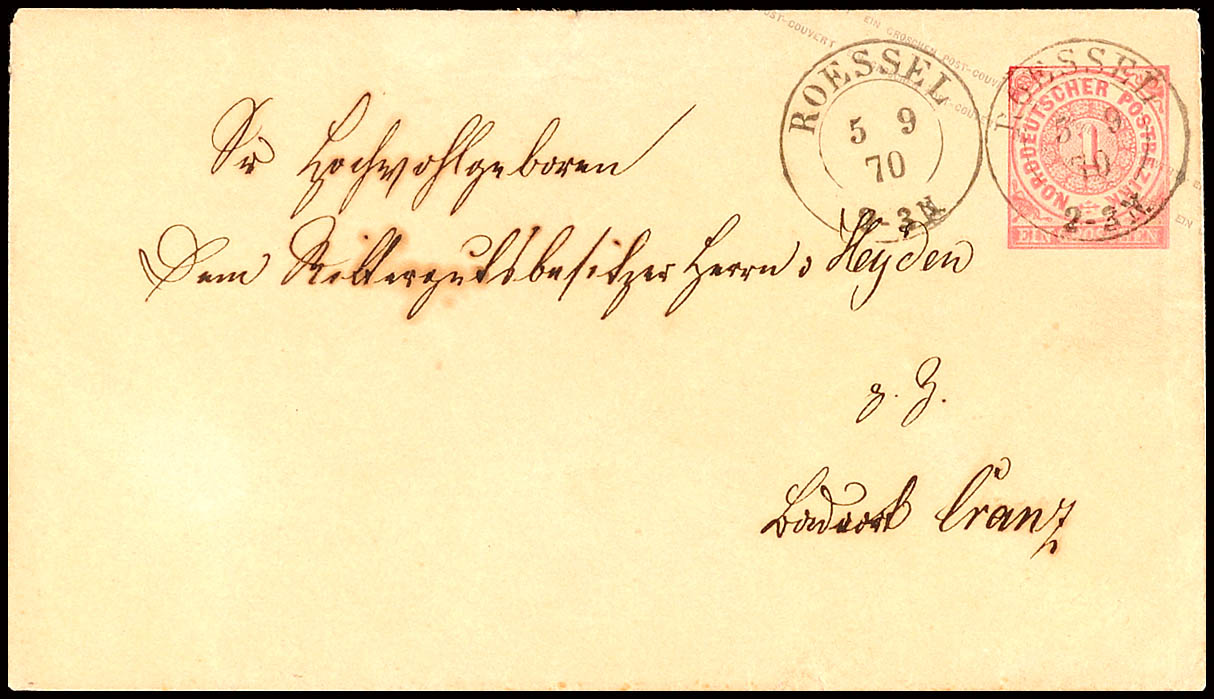 POST-COUVERT EIN GROSCHEN POST-COUVERT
ROESSEL
5 9
70
2-3 N.
ROESSEL
5 9
70
2-3 N.
NORDDEUTSCHER POSTBEZIRK
1
EIN GROSCHEN
Sr Hochwohlgeboren
Dem Rittergutsbesitzer Herrn v Heyden
z. Z.
Badeort Cranz